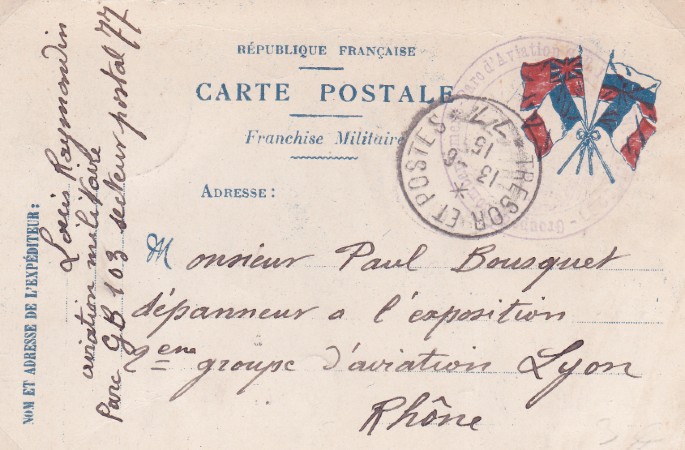 RÉPUBLIQUE FRANÇAISE
CARTE POSTALE
Franchise Militaire
ADRESSE :
Monsieur Paul Bousquet
dépanneur a l'exposition
2eme groupe d'aviation Lyon
Rhône
NOM ET ADRESSE DE L'EXPÉDITEUR :
Louis Raymondin
aviation militaire
Parc GB 103 secteur postal 77
TRESOR ET POSTES * 77 *
13 - 8
15
Parc d'Aviation